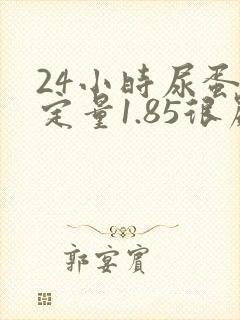 24小時尿蛋
定量1.85很
郭宴賓